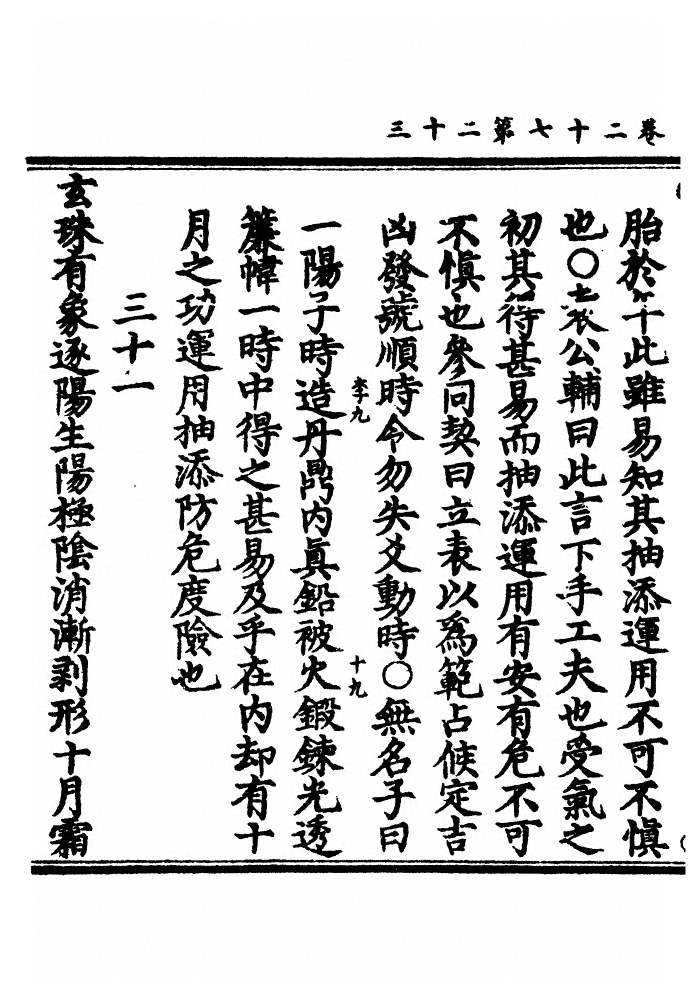 卷二十七第二十三
胎於午此雖易知其抽添運用不可不慎
也〇袁公輔曰此言下手工夫也受氣之
初其得甚易而抽添運用有安有危不可
不慎也參同契曰立表以爲範占候定吉
凶發號順時令勿失爻動時〇無名子曰
李子九
十九
一陽子時造丹鼎内眞鉛被火鍛鍊光透
簾幃一時中得之甚易及乎在内却有十
月之功運用抽添防危度險也
三十一
玄珠有象逐陽生陽極陰消漸剥形十月霜